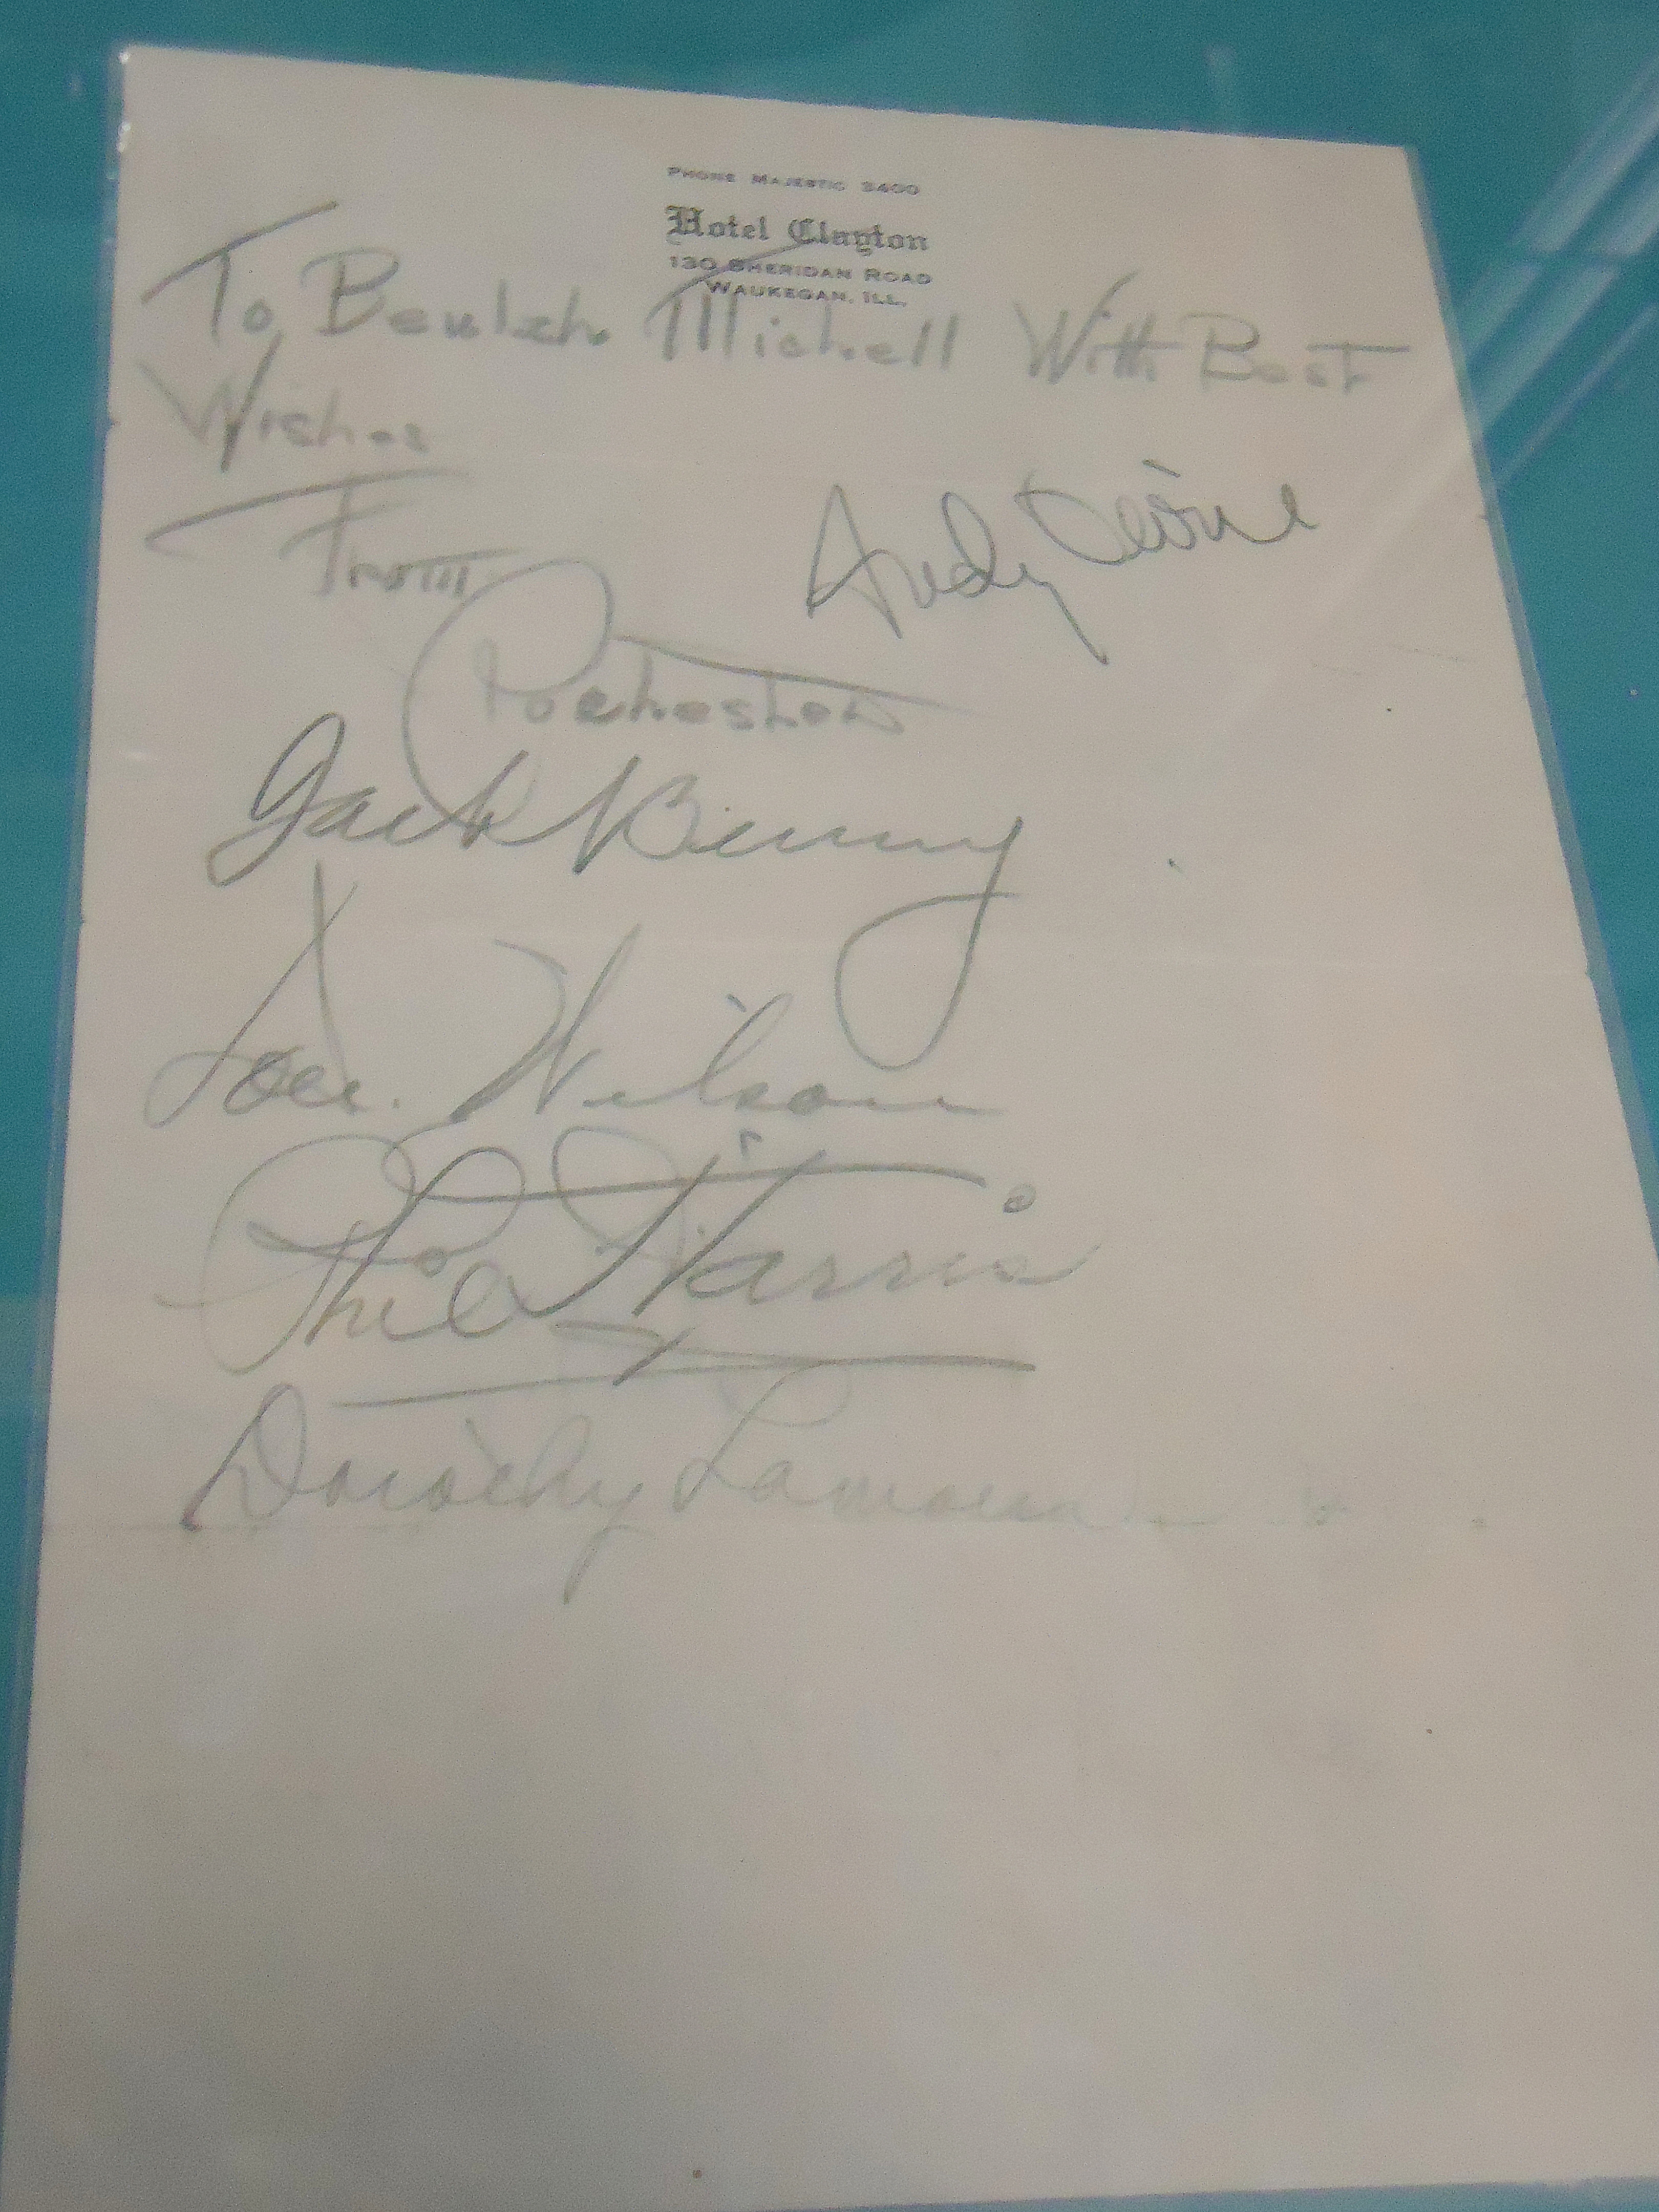 PHONE MAJESTIC 3400
Hotel Clayton
130 SHERIDAN ROAD
WAUKEGAN, ILL.
To Beulah Michell With Best
Wishes
From
Andy Devine
Rochester
Jack Benny
Don Wilson
Phil Harris
Dorothy Lamour